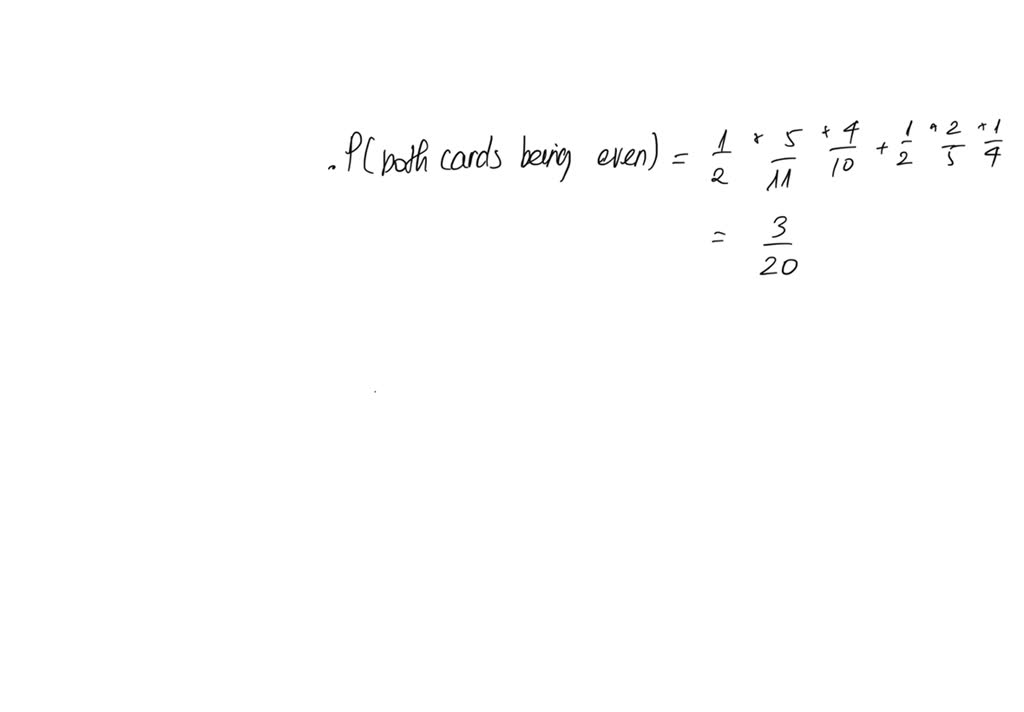 . P(both cards being even) = 1/2 * 5/11 * 4/10 + 1/2 * 2/5 * 1/4
= 3/20